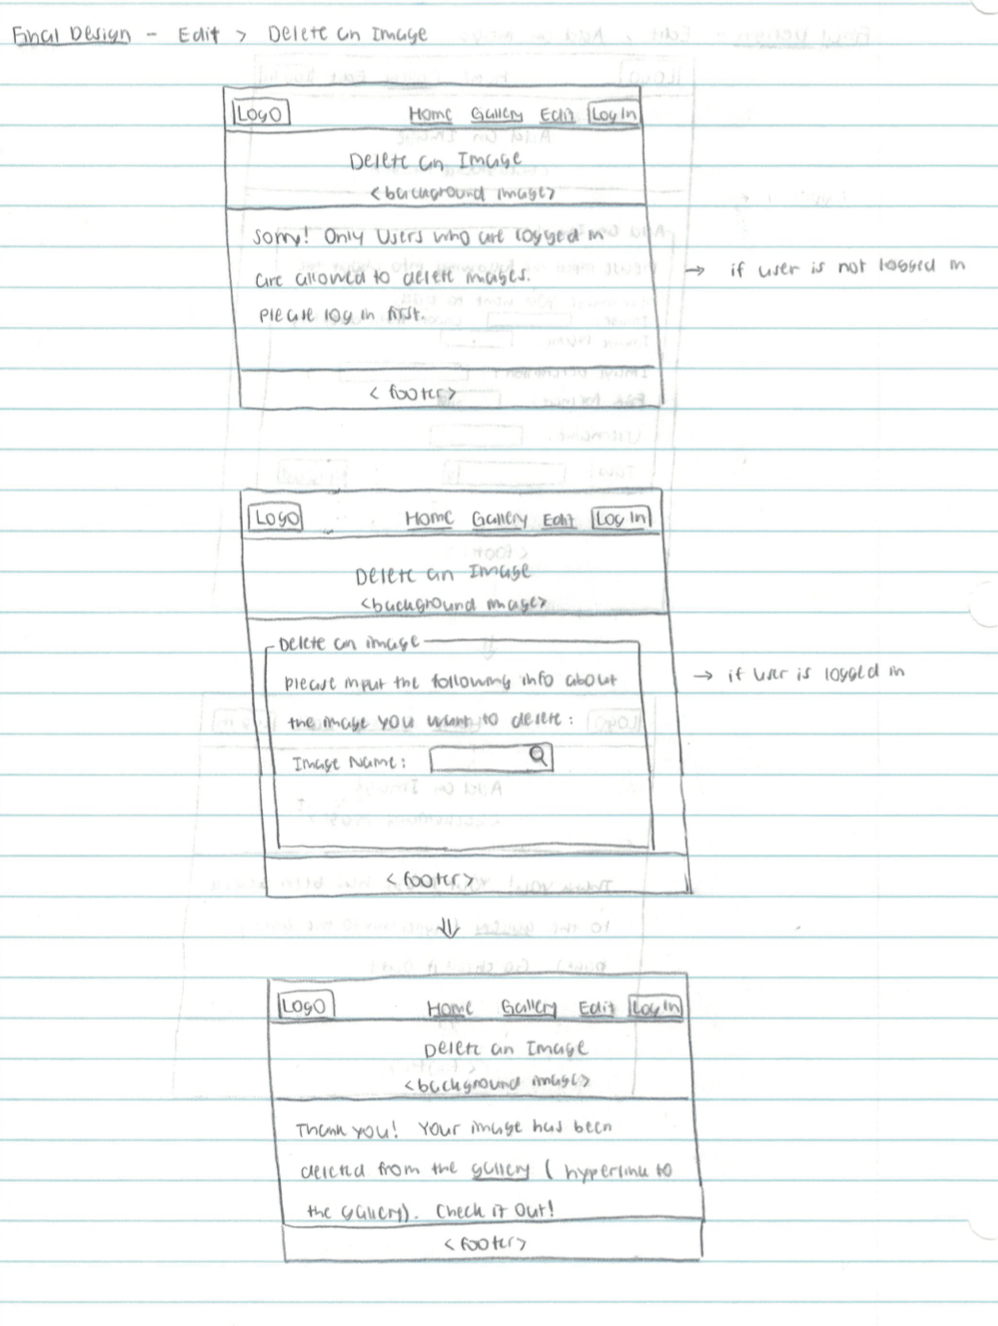 Final Design - Edit > Delete an Image
Logo Home Gallery Edit Log In
Delete an Image
<background image>
Sorry! Only users who are logged in
are allowed to delete images.
Please log in first.
→ if user is not logged in
<footer>
Logo Home Gallery Edit Log In
Delete an Image
<background image>
Delete an image
Please input the following info about
the image you want to delete:
Image Name:
→ if user is logged in
<footer>
⇓
Logo Home Gallery Edit Log In
Delete an Image
<background image>
Thank you! Your image has been
deleted from the gallery (hyperlink to
the gallery). Check it Out!
<footer>